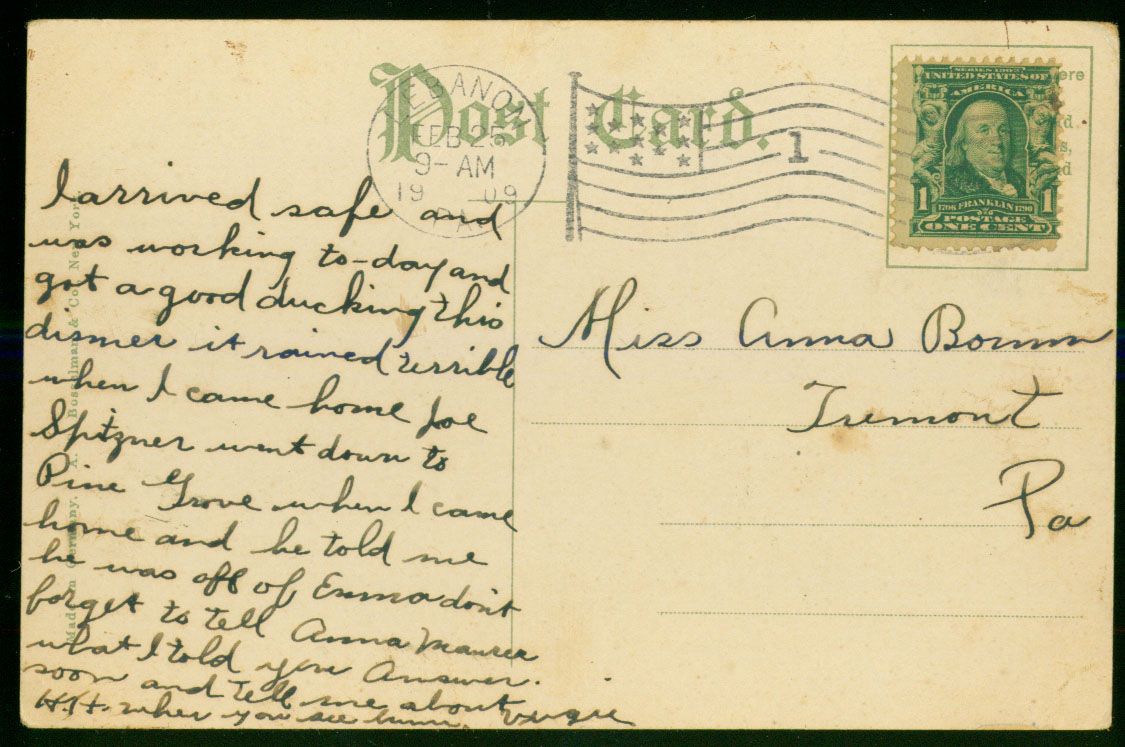 Post Card.
LEBANON
FEB 25
9-AM
19 09
PA.
1
SERIES 1902
UNITED STATES OF
AMERICA
1706 FRANKLIN 1790
1 1
POSTAGE
ONE CENT
ere
d
s,
d
I arrived safe and
was working to-day and
got a good ducking this
dinner it rained terrible
when I came home Joe
Spitzner went down to
Pine Grove when I came
home and he told me
he was off of Emma don't
forget to tell Anna Maurer
what I told you Answer.
soon and tell me about
H.H. when you see him.
Miss Anna Bomm
Tremont
Pa
Made in Germany. A. Bosselman & Co. New York.